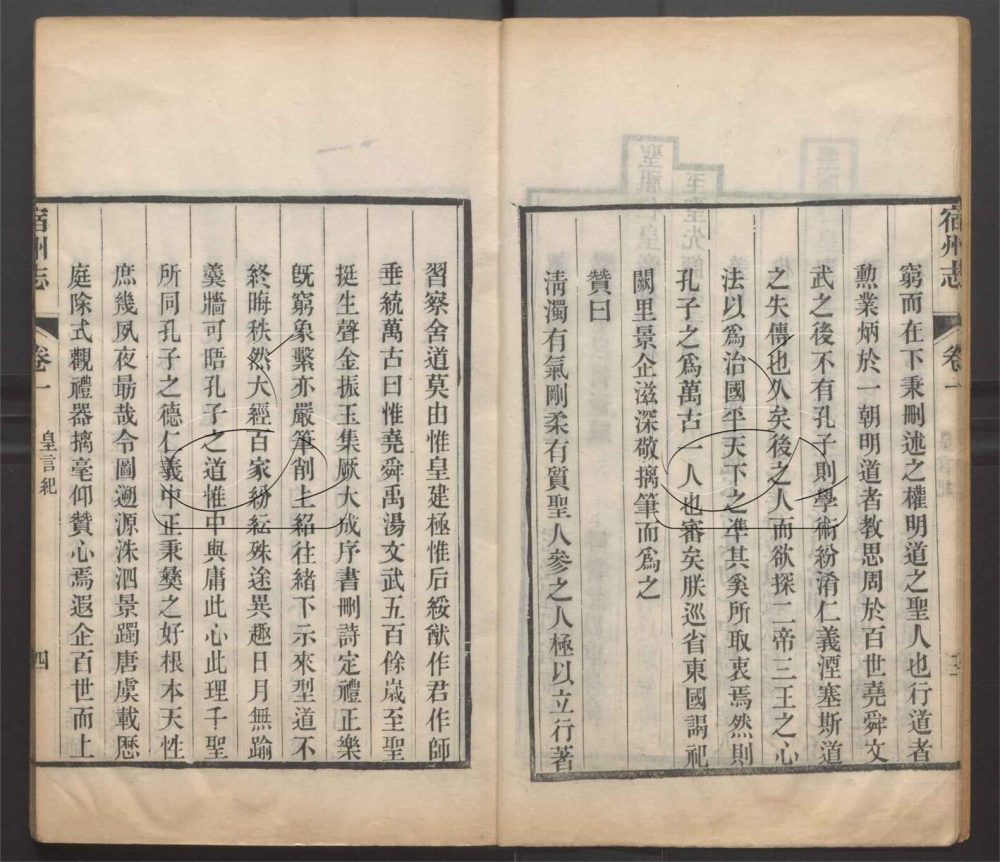 宿州志 卷一
窮而在下秉刪述之權明道之聖人也行道者
勳業炳於一朝明道者教思周於百世堯舜文
武之後不有孔子則學術紛淆仁義湮塞斯道
之失傳也久矣後之人而欲探二帝三王之心
法以爲治國平天下之準其奚所取衷焉然則
孔子之爲萬古一人也審矣朕巡省東國謁祀
闕里景企滋深敬摛筆而爲之
贊曰
淸濁有氣剛柔有質聖人參之人極以立行著
習察舍道莫由惟皇建極惟后綏猷作君作師
垂統萬古曰惟堯舜禹湯文武五百餘歲至聖
挺生聲金振玉集厥大成序書刪詩定禮正樂
旣窮象繫亦嚴筆削上紹往緒下示來型道不
終晦秩然大經百家紛紜殊途異趣日月無踰
羹牆可晤孔子之道惟中與庸此心此理千聖
所同孔子之德仁義中正秉彝之好根本天性
庶幾夙夜勗哉令圖遡源洙泗景躅唐虞載歷
庭除式觀禮器摛毫仰贊心焉遐企百世而上
宿州志 卷一 皇言紀 四